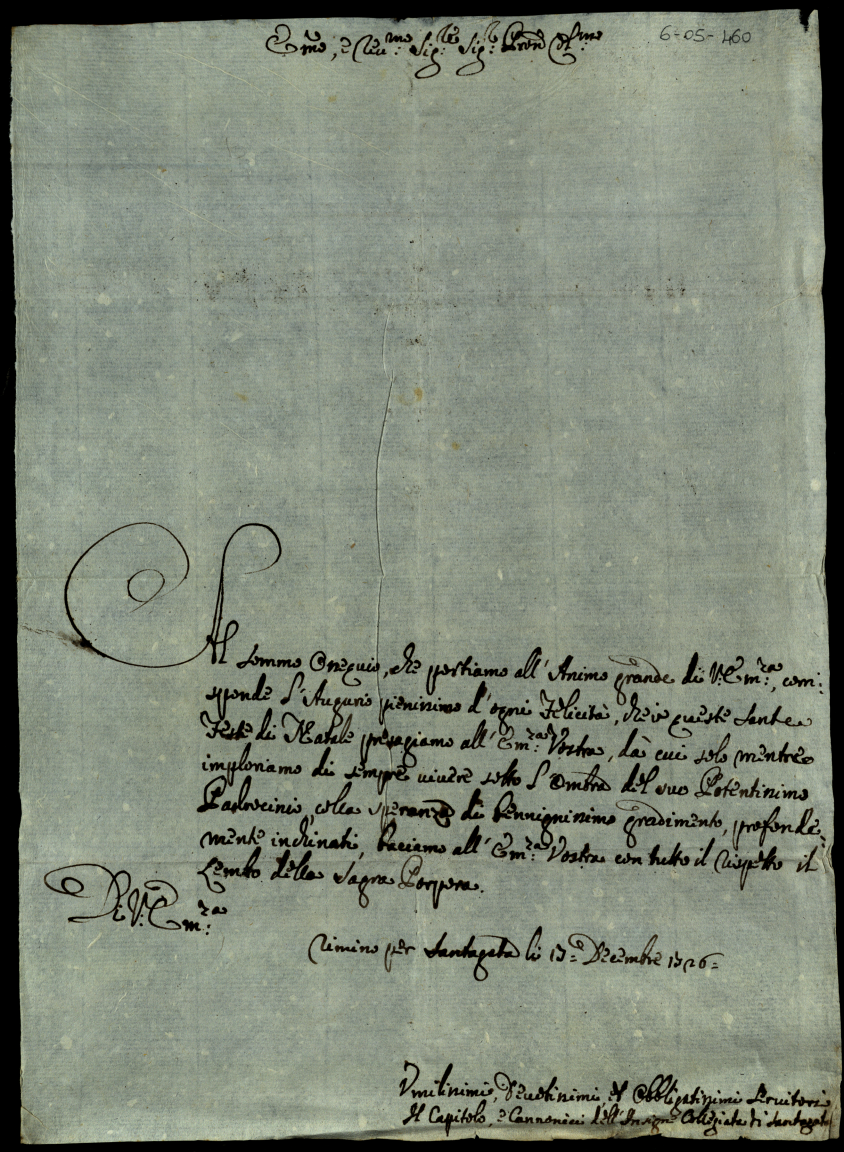 6-05-460
Em̃o, e Reu:mo Sig:re Sig:re Pron̄ Col:mo
Al sommo Ossequio, che portiamo all' Animo grande di V: Em:za, corri:
sponde l'Augurio pienissimo d'ogni Felicità, che in queste Sante
Feste di Natale presagiamo all' Em:za Vostra, da cui solo mentre
imploriamo di sempre viuere sotto l'Ombra del suo Potentissimo
Padrocinio, colla speranza di bennignissimo gradimento, profonda:
mente inchinati, baciamo all' Em:za Vostra con tutto il rispetto il
Lembo della Sagra Porpora.
Di V: Em:za
Rimino per Santagata li 13= Decembre 1726=
Vmilissimi, Deuotissimi, et Obbligatissimi Seruitori
Il Capitolo, e Cannonici dell'Insigne Collegiata di Santagata